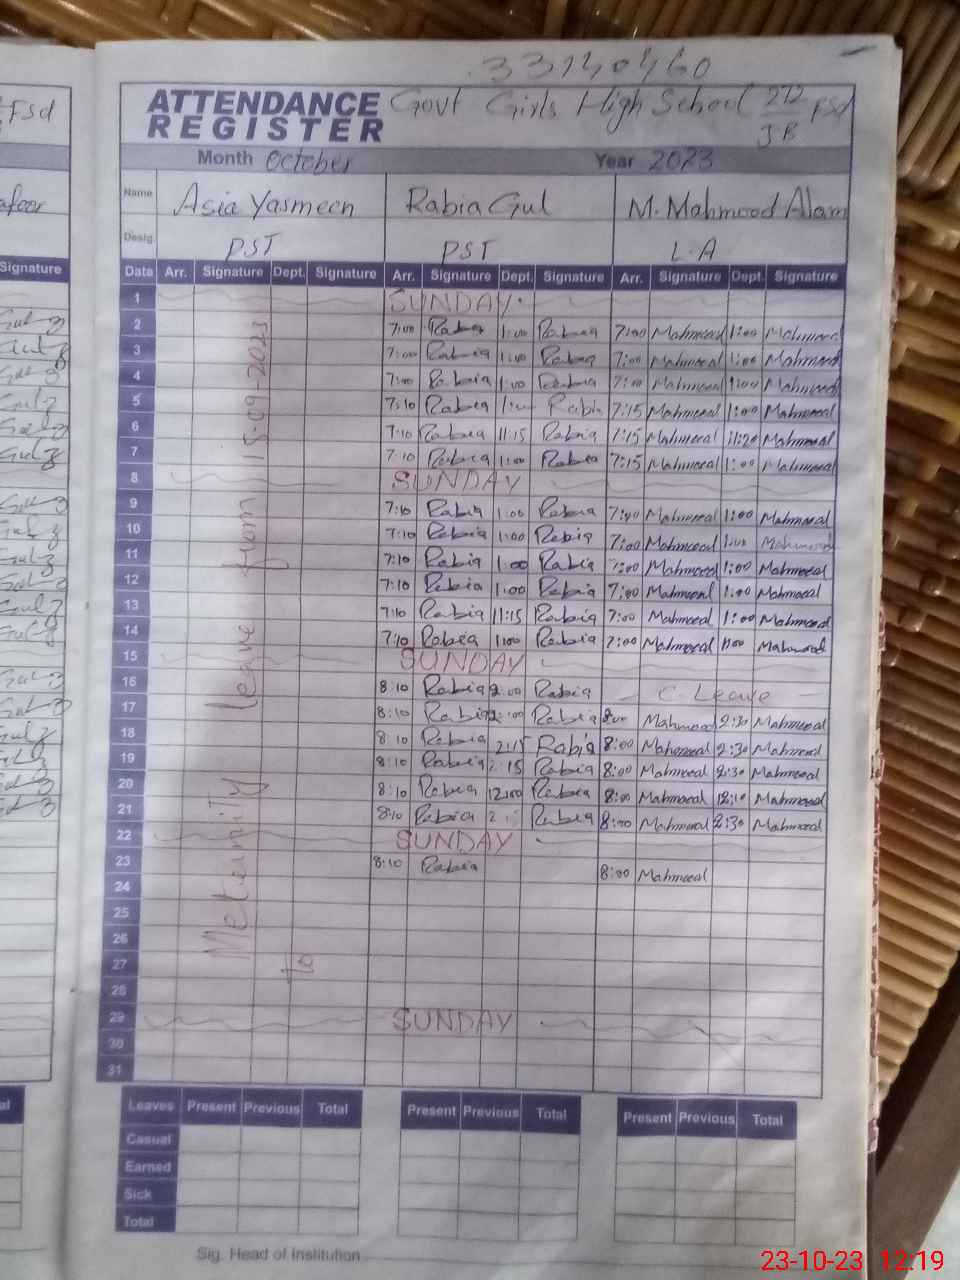 33140460
ATTENDANCE REGISTER
Govt Girls High School 272 JB Fsd
Month October Year 2023
Name Asia Yasmeen Rabia Gul M. Mahmood Alam
Desig. PST PST L.A
Date Arr. Signature Dept. Signature Arr. Signature Dept. Signature Arr. Signature Dept. Signature
Meternity leave from 15-09-2023
to
1 SUNDAY
2 7:00 Rabia 1:00 Rabia 7:00 Mahmood 1:00 Mahmood
3 7:00 Rabia 1:00 Rabia 7:00 Mahmood 1:00 Mahmood
4 7:00 Rabia 1:00 Rabia 7:00 Mahmood 1:00 Mahmood
5 7:10 Rabia Rabia 7:15 Mahmood 1:00 Mahmood
6 7:10 Rabia 11:15 Rabia 7:15 Mahmood 11:20 Mahmood
7 7:10 Rabia 1:00 Rabia 7:15 Mahmood 1:00 Mahmood
8 SUNDAY
9 7:10 Rabia 1:00 Rabia 7:00 Mahmood 1:00 Mahmood
10 7:10 Rabia 1:00 Rabia 7:00 Mahmood 1:00 Mahmood
11 7:10 Rabia 1:00 Rabia 7:00 Mahmood 1:00 Mahmood
12 7:10 Rabia 1:00 Rabia 7:00 Mahmood 1:00 Mahmood
13 7:10 Rabia 11:15 Rabia 7:00 Mahmood 1:00 Mahmood
14 7:10 Rabia 1:00 Rabia 7:00 Mahmood 1:00 Mahmood
15 SUNDAY
16 8:10 Rabia 2:00 Rabia C. Leave
17 8:10 Rabia 2:00 Rabia 8:00 Mahmood 2:30 Mahmood
18 8:10 Rabia 2:15 Rabia 8:00 Mahmood 2:30 Mahmood
19 8:10 Rabia 2:15 Rabia 8:00 Mahmood 2:30 Mahmood
20 8:10 Rabia 12:00 Rabia 8:00 Mahmood 12:10 Mahmood
21 8:10 Rabia Rabia 8:00 Mahmood 2:30 Mahmood
22 SUNDAY
23 8:10 Rabia 8:00 Mahmood
24
25
26
27
28
29 SUNDAY
30
31
Leaves Present Previous Total Present Previous Total Present Previous Total
Casual
Earned
Sick
Total
Sig. Head of Institution
23-10-23 12:19